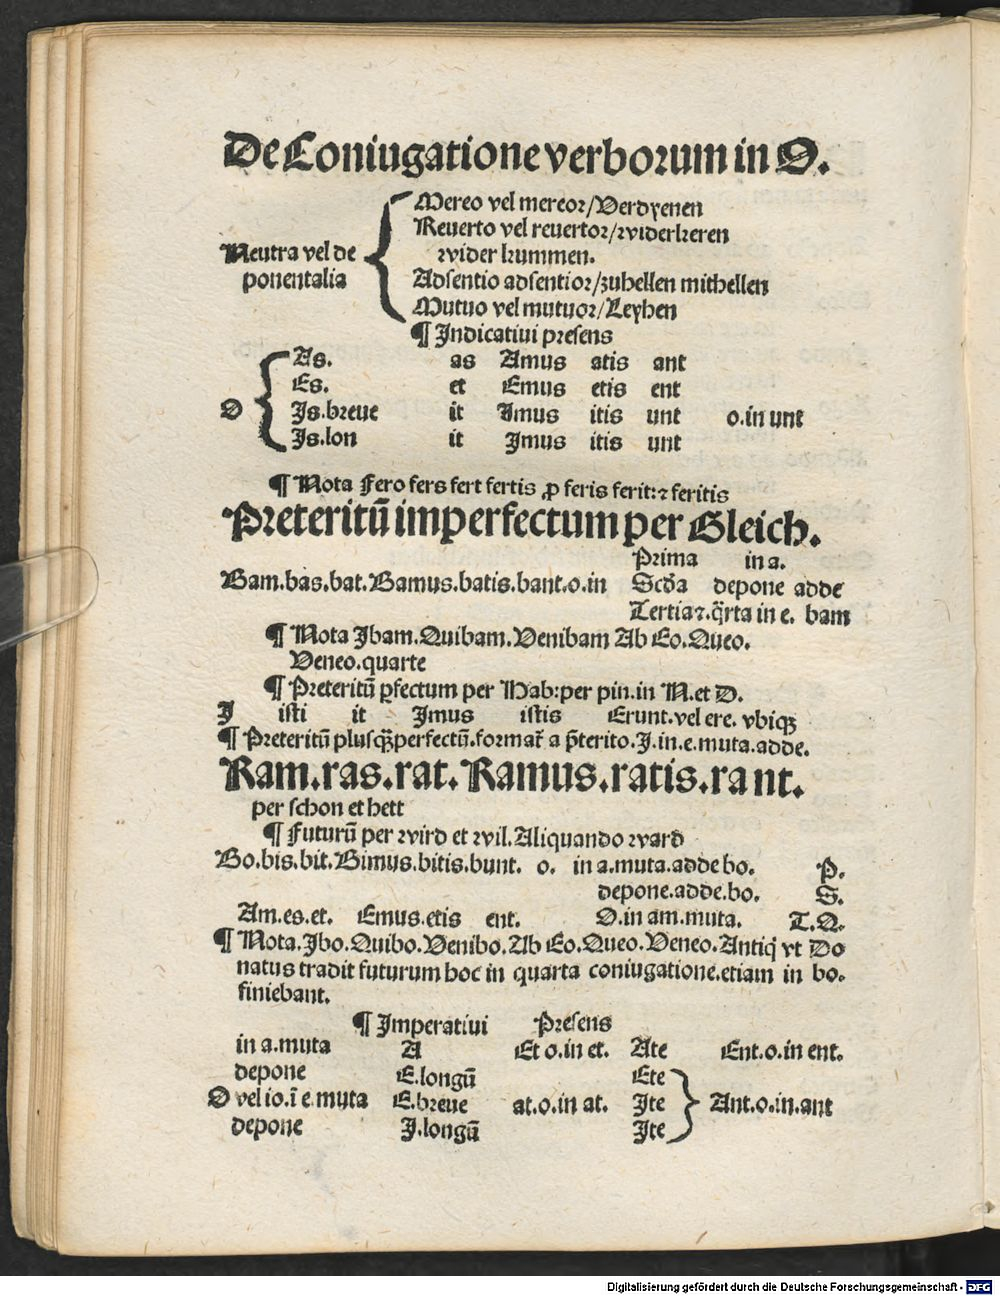 De Coniugatione verborum in O.
Mereo vel mereor/Verdyenen
Reuerto vel reuertor/widerkeren
Neutra vel de
wider kummen.
ponentalia
Adsentio adsentior/zuhellen mithellen
Mutuo vel mutuor/Leyhen
¶ Indicatiui presens
As. as Amus atis ant
Es. et Emus etis ent
O Is.breue it Imus itis unt o.in unt
Is.lon it Imus itis unt
¶ Nota Fero fers fert fertis ꝓ feris ferit:⁊ feritis
Preteritū imperfectum per Gleich.
Prima in a.
Bam.bas.bat.Bamus.batis.bant.o.in Scd̄a depone adde
Tertia⁊.q̄rta in e. bam
¶ Nota Ibam.Quibam.Venibam Ab Eo.Queo.
Veneo.quarte
¶ Preteritū ꝑfectum per Hab:per pin.in N.et D.
I isti it Imus istis Erunt.vel ere. vbiqꝫ
¶ Preteritū plusqꝫperfectū.format̄ a p̄terito.I.in.e.muta.adde.
Ram.ras.rat.Ramus.ratis.rant.
per schon et hett
¶ Futurū per wird et wil.Aliquando ward
Bo.bis.bit.Bimus.bitis.bunt. o. in a.muta.adde bo. P.
depone.adde.bo. S.
Am.es.et. Emus.etis ent. O.in am.muta. T.Q.
¶ Nota.Ibo.Quibo.Venibo.Ab Eo.Queo.Veneo.Antiq̄ vt Do
natus tradit futurum hoc in quarta coniugatione.etiam in bo.
finiebant.
¶ Imperatiui Presens
in a.muta A Et o.in et. Ate Ent.o.in ent.
depone E.longū Ete
O vel io.ī e.muta E.breue at.o.in at. Ite Ant.o.in.ant
depone I.longū Ite
Digitalisierung gefördert durch die Deutsche Forschungsgemeinschaft - DFG